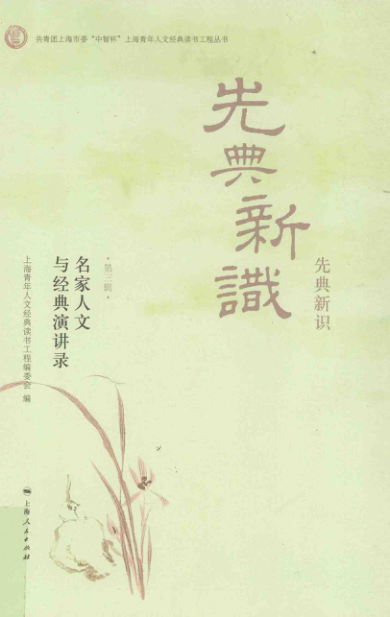 共青团上海市委“中智杯”上海青年人文经典读书工程丛书
先典新識
先典新识
·第三辑·
名家人文
与经典演讲录
上海青年人文经典读书工程编委会 编
上海人民出版社